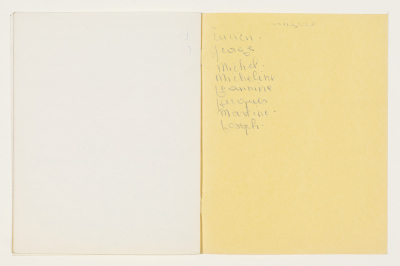 Lucien.
Georges
Michel.
Micheline
Jeannine
Jacques
Martine.
Joseph.